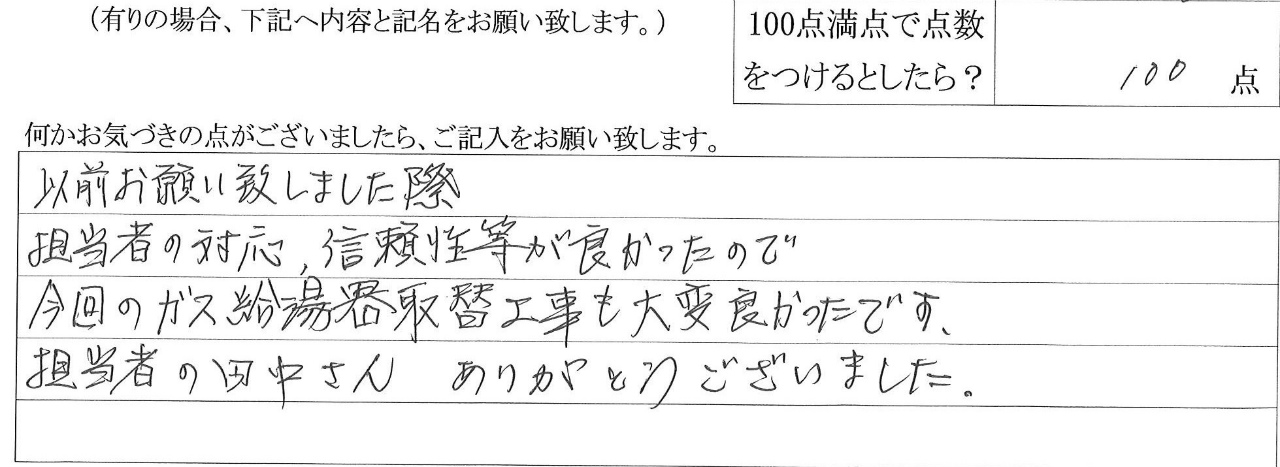 (有りの場合、下記へ内容と記名をお願い致します。)
100点満点で点数
をつけるとしたら？
100 点
何かお気づきの点がございましたら、ご記入をお願い致します。
以前お願い致しました際
担当者の対応、信頼性等が良かったので
今回のガス給湯器取替工事も大変良かったです、
担当者の田中さん ありがとうございました。